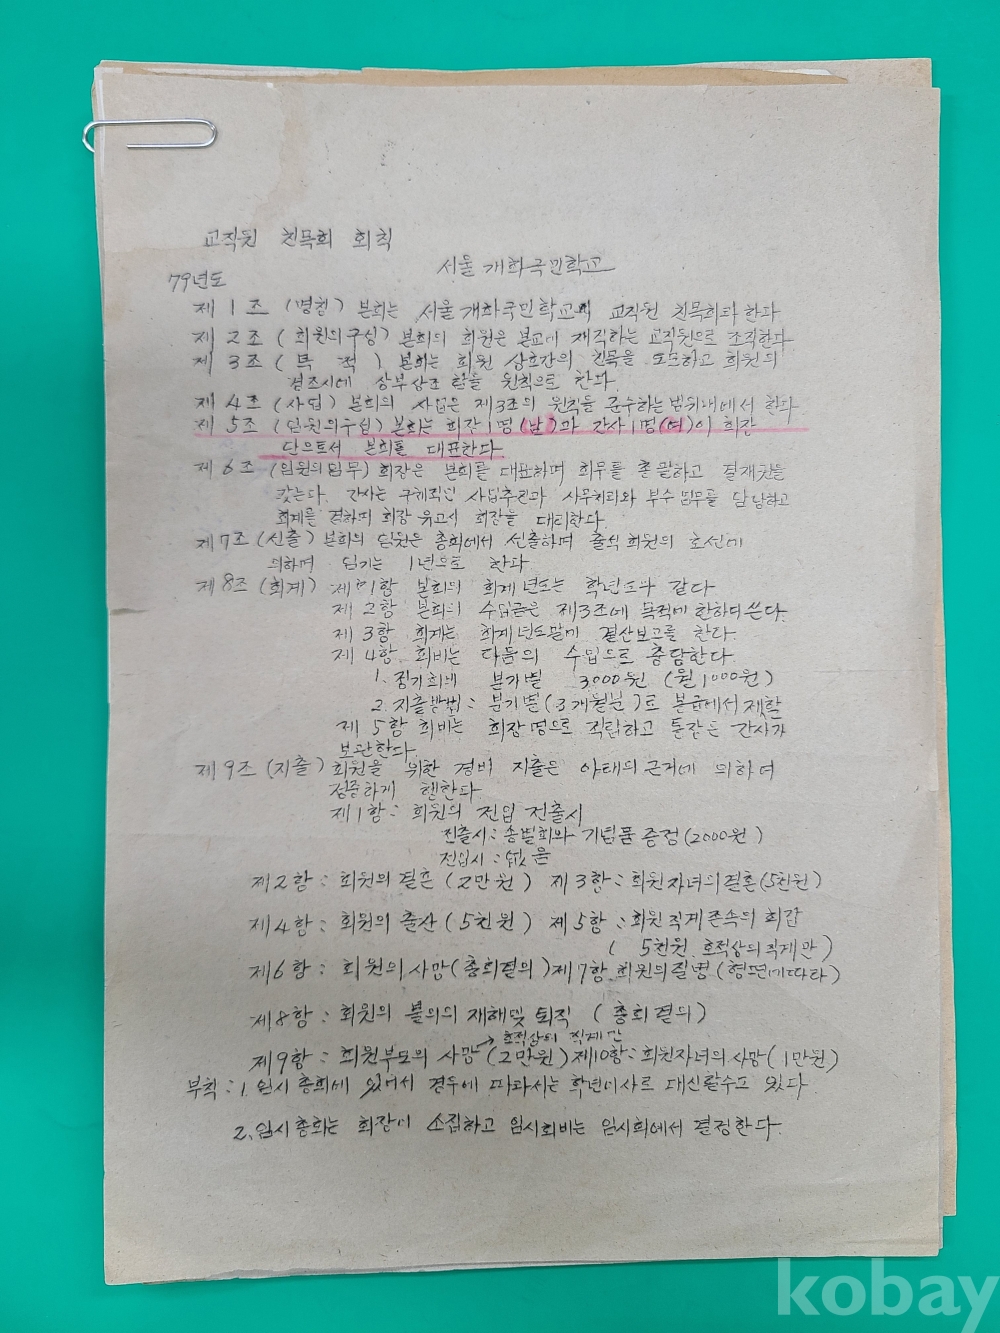 교직원 친목회 회칙
서울 개화국민학교
79년도
제 1 조 (명칭) 본회는 서울개화국민학교의 교직원 친목회라 한다
제 2 조 (회원의구성) 본회의 회원은 본교에 재직하는 교직원으로 조직한다
제 3 조 (목적) 본회는 회원 상호간의 친목을 도모하고 회원의
경조시에 상부상조 함을 원칙으로 한다.
제 4 조 (사업) 본회의 사업은 제3조의 원칙을 준수하는 범위내에서 한다
제 5 조 (임원의구성) 본회는 회장 1명(남)과 간사 1명(여)이 회장
단으로서 본회를 대표한다.
제 6 조 (임원의임무) 회장은 본회를 대표하며 회무를 총괄하고 결재권을
갖는다. 간사는 구체적인 사업추진과 사무처리와 부수 업무를 담당하고
회계를 겸하며 회장 유고시 회장을 대리한다.
제7조 (선출) 본회의 임원은 총회에서 선출하며 출석 회원의 호선에
의하며 임기는 1년으로 한다
제 8조 (회계) 제1항 본회의 회계년도는 학년도와 같다
제 2항 본회의 수입금은 제3조에 목적에 한하여 쓴다.
제 3항 회계는 회계년도말에 결산보고를 한다.
제 4항 회비는 다음의 수입으로 충당한다.
1. 정기회비 분기별 3000원 (월 1000원)
2. 지출방법: 분기별 (3개월분)로 본급에서 제함
제 5항 회비는 회장 명으로 적립하고 통장은 간사가
보관한다.
제 9조 (지출) 회원을 위한 경비 지출은 아래의 근거에 의하여
정중하게 행한다.
제1항: 회원의 전입 전출시
전출시: 송별회와 기념품 증정 (2000원)
전입시: 없음
제2항: 회원의 결혼 (2만원) 제 3항: 회원자녀의결혼 (5천원)
제4항: 회원의 출산 (5천원) 제 5항: 회원 직계존속의 회갑
(5천원 호적상의 직계만)
제6항: 회원의 사망 (총회결의) 제7항 회원의 질병 (형편에따라)
제8항: 회원의 불의의 재해및 퇴직 (총회결의)
→ 호적상에 직계만
제9항: 회원부모의 사망 (2만원) 제10항: 회원자녀의 사망 (1만원)
부칙: 1. 임시총회에 있어서 경우에 따라서는 학년이사로 대신할수도 있다.
2. 임시총회는 회장이 소집하고 임시회비는 임시회에서 결정한다.
kobay